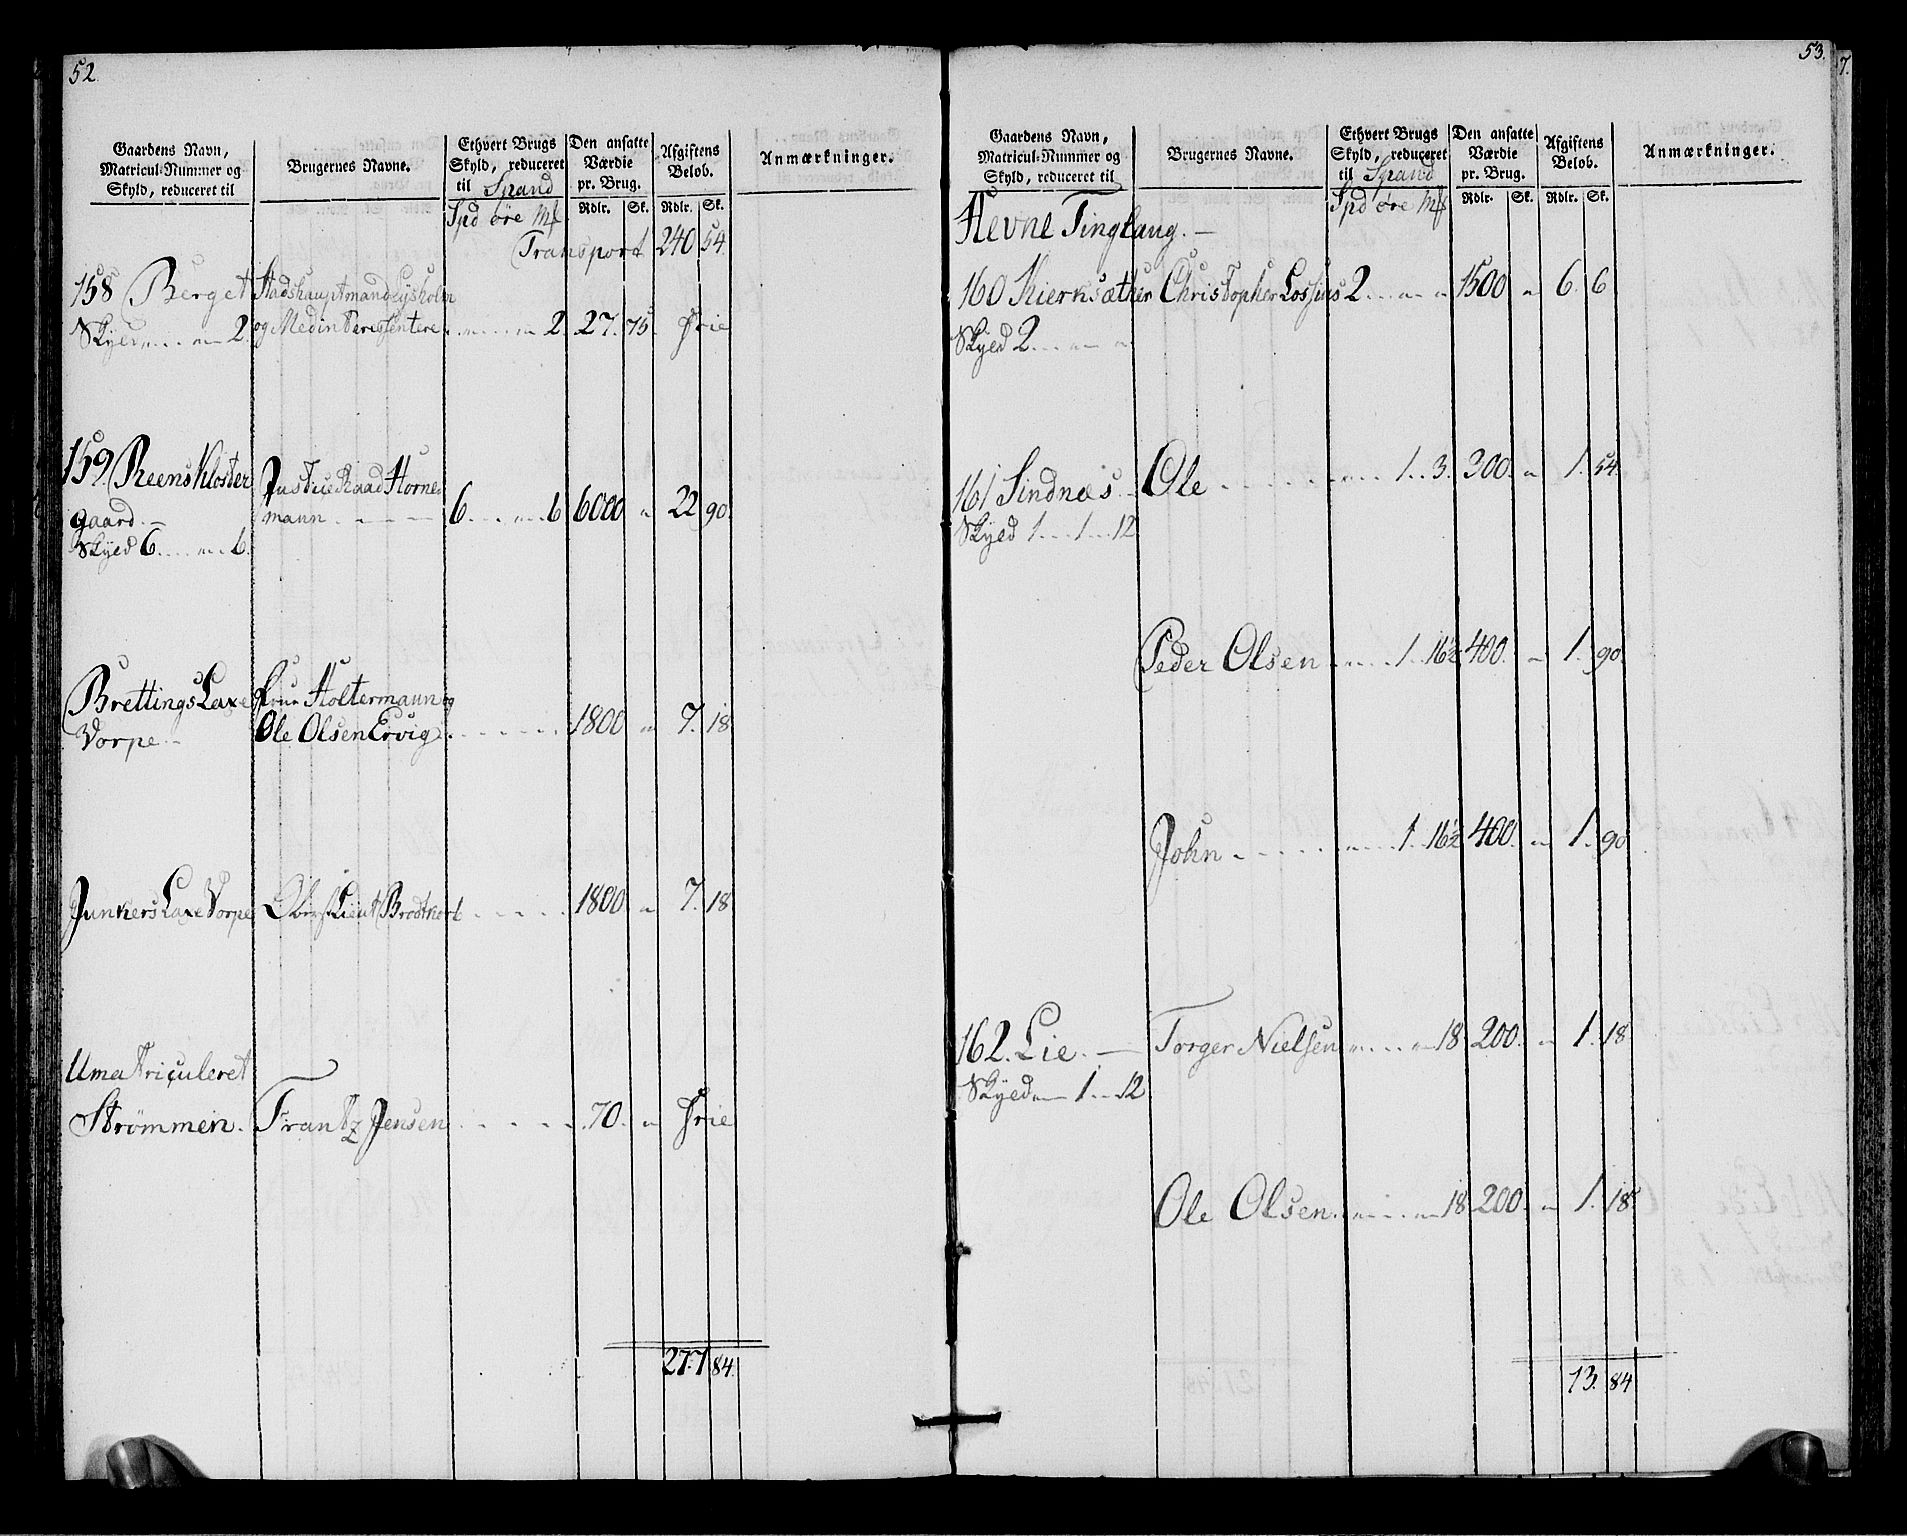 52.
Gaardens Navn,
Matricul-Nummer og
Skyld, reduceret til
Brugernes Navne.
Ethvert Brugs
Skyld, reduceret
til Spand
Spd øre Mk
Den ansatte
Værdie
pr. Brug.
Rdlr. Sk.
Afgiftens
Belob.
Rdlr. Sk.
Anmærkninger.
Transport 240 54
158 Berget Stadshauptmand Lysholm
Skyed 2. og Medinteressentere 2. 27. 75. frie
159 Reens Kloster Justice Raad Horne-
gaard.- mann 6 6 6000 " 22 90.
Skyed 6 6.
Brettings Laxe Frue Holtermann og
Vorpe Ole Olsen Ervig. 1800 " 7. 18
Junkers Laxe Vorpe Oberst Lieut Brodtkorb 1800 " 7. 18
Umatriculeret
Strømmen. Frantz Jensen 70. " frie
277 84.
53.
7.
Gaardens Navn,
Matricul-Nummer og
Skyld, reduceret til
Brugernes Navne.
Ethvert Brugs
Skyld, reduceret
til Spand
Spd øre Mk
Den ansatte
Værdie
pr. Brug.
Rdlr. Sk.
Afgiftens
Belob.
Rdlr. Sk.
Anmærkninger.
Hevne Tinglaug.-
160 Kiernsæther Christopher Lossius 2 1500 " 6. 6
Skyed 2
161 Sindnæs. Ole 1 3. 300. " 1. 54
Skyed 1 1 12
Peder Olsen 1 16½ 400. " 1. 90
John 1 16½ 400. " 1. 90
162. Lie. Torger Nielsen 18 200. " 1. 18
Skyed 1 12
Ole Olsen 18 200. " 1. 18
13. 84